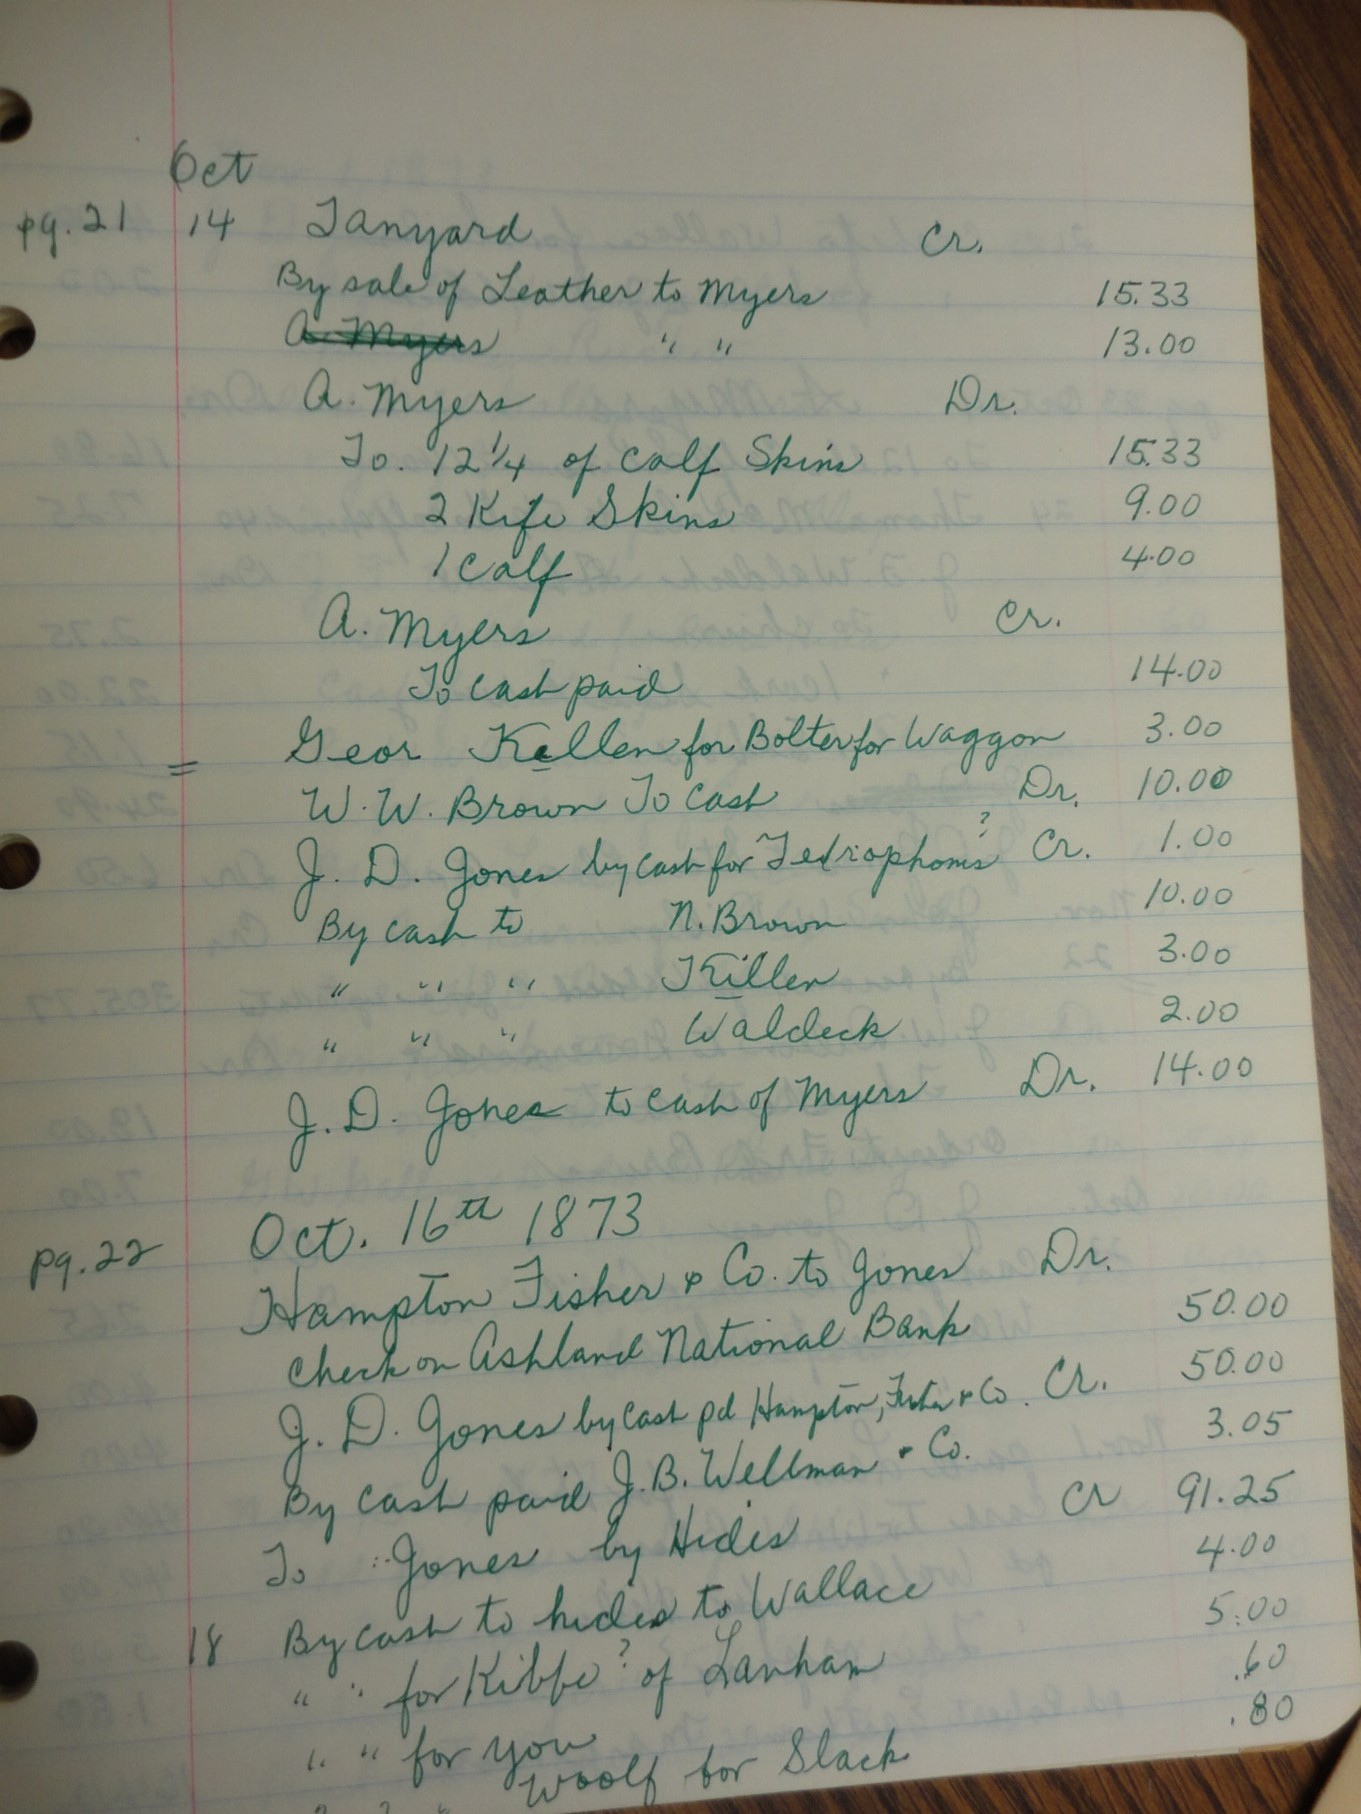 Oct
pg. 21 14 Tanyard Cr.
By sale of Leather to Myers 15.33
A. Myers " " 13.00
A. Myers Dr.
To. 12 1/4 of calf Skins 15.33
2 Kife Skins 9.00
1 calf 4.00
A. Myers Cr.
To cash paid 14.00
= Geor Kellen for Bolter for Waggon 3.00
W. W. Brown To Cash Dr. 10.00
J. D. Jones by cash for ? Cr. 1.00
By cash to N. Brown 10.00
" " " Killen 3.00
" " " Waldeck 2.00
J. D. Jones to cash of Myers Dr. 14.00
pg. 22 Oct. 16th 1873
Hampton Fisher & Co. to Jones Dr.
Check on Ashland National Bank 50.00
J. D. Jones by cash pd Hampton, Fisher & Co. Cr. 50.00
By cash paid J. B. Wellman & Co. 3.05
To Jones by Hides Cr 91.25
18 By cash to hides to Wallace 4.00
" " for Kibfe? of Lanham 5.00
" " for you .60
Woolf for Slack .80